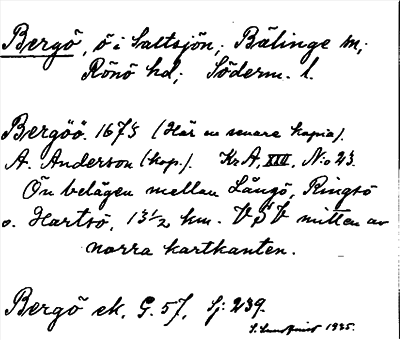 Bergö, ö i Saltsjön; Bälinge sn;
Rönö hd; Söderm. l.
Bergöö. 1675 (Här en senare kopia).
A. Anderson (kop.). Kr.A, XIII, N:o 23.
Ön belägen mellan Långö, Ringsö
o. Hartsö, 13 1/2 km. VSV mitten av
norra kartkanten.
Bergö ek. G. 57, Sj: 239.
S. Lundqvist 1935.